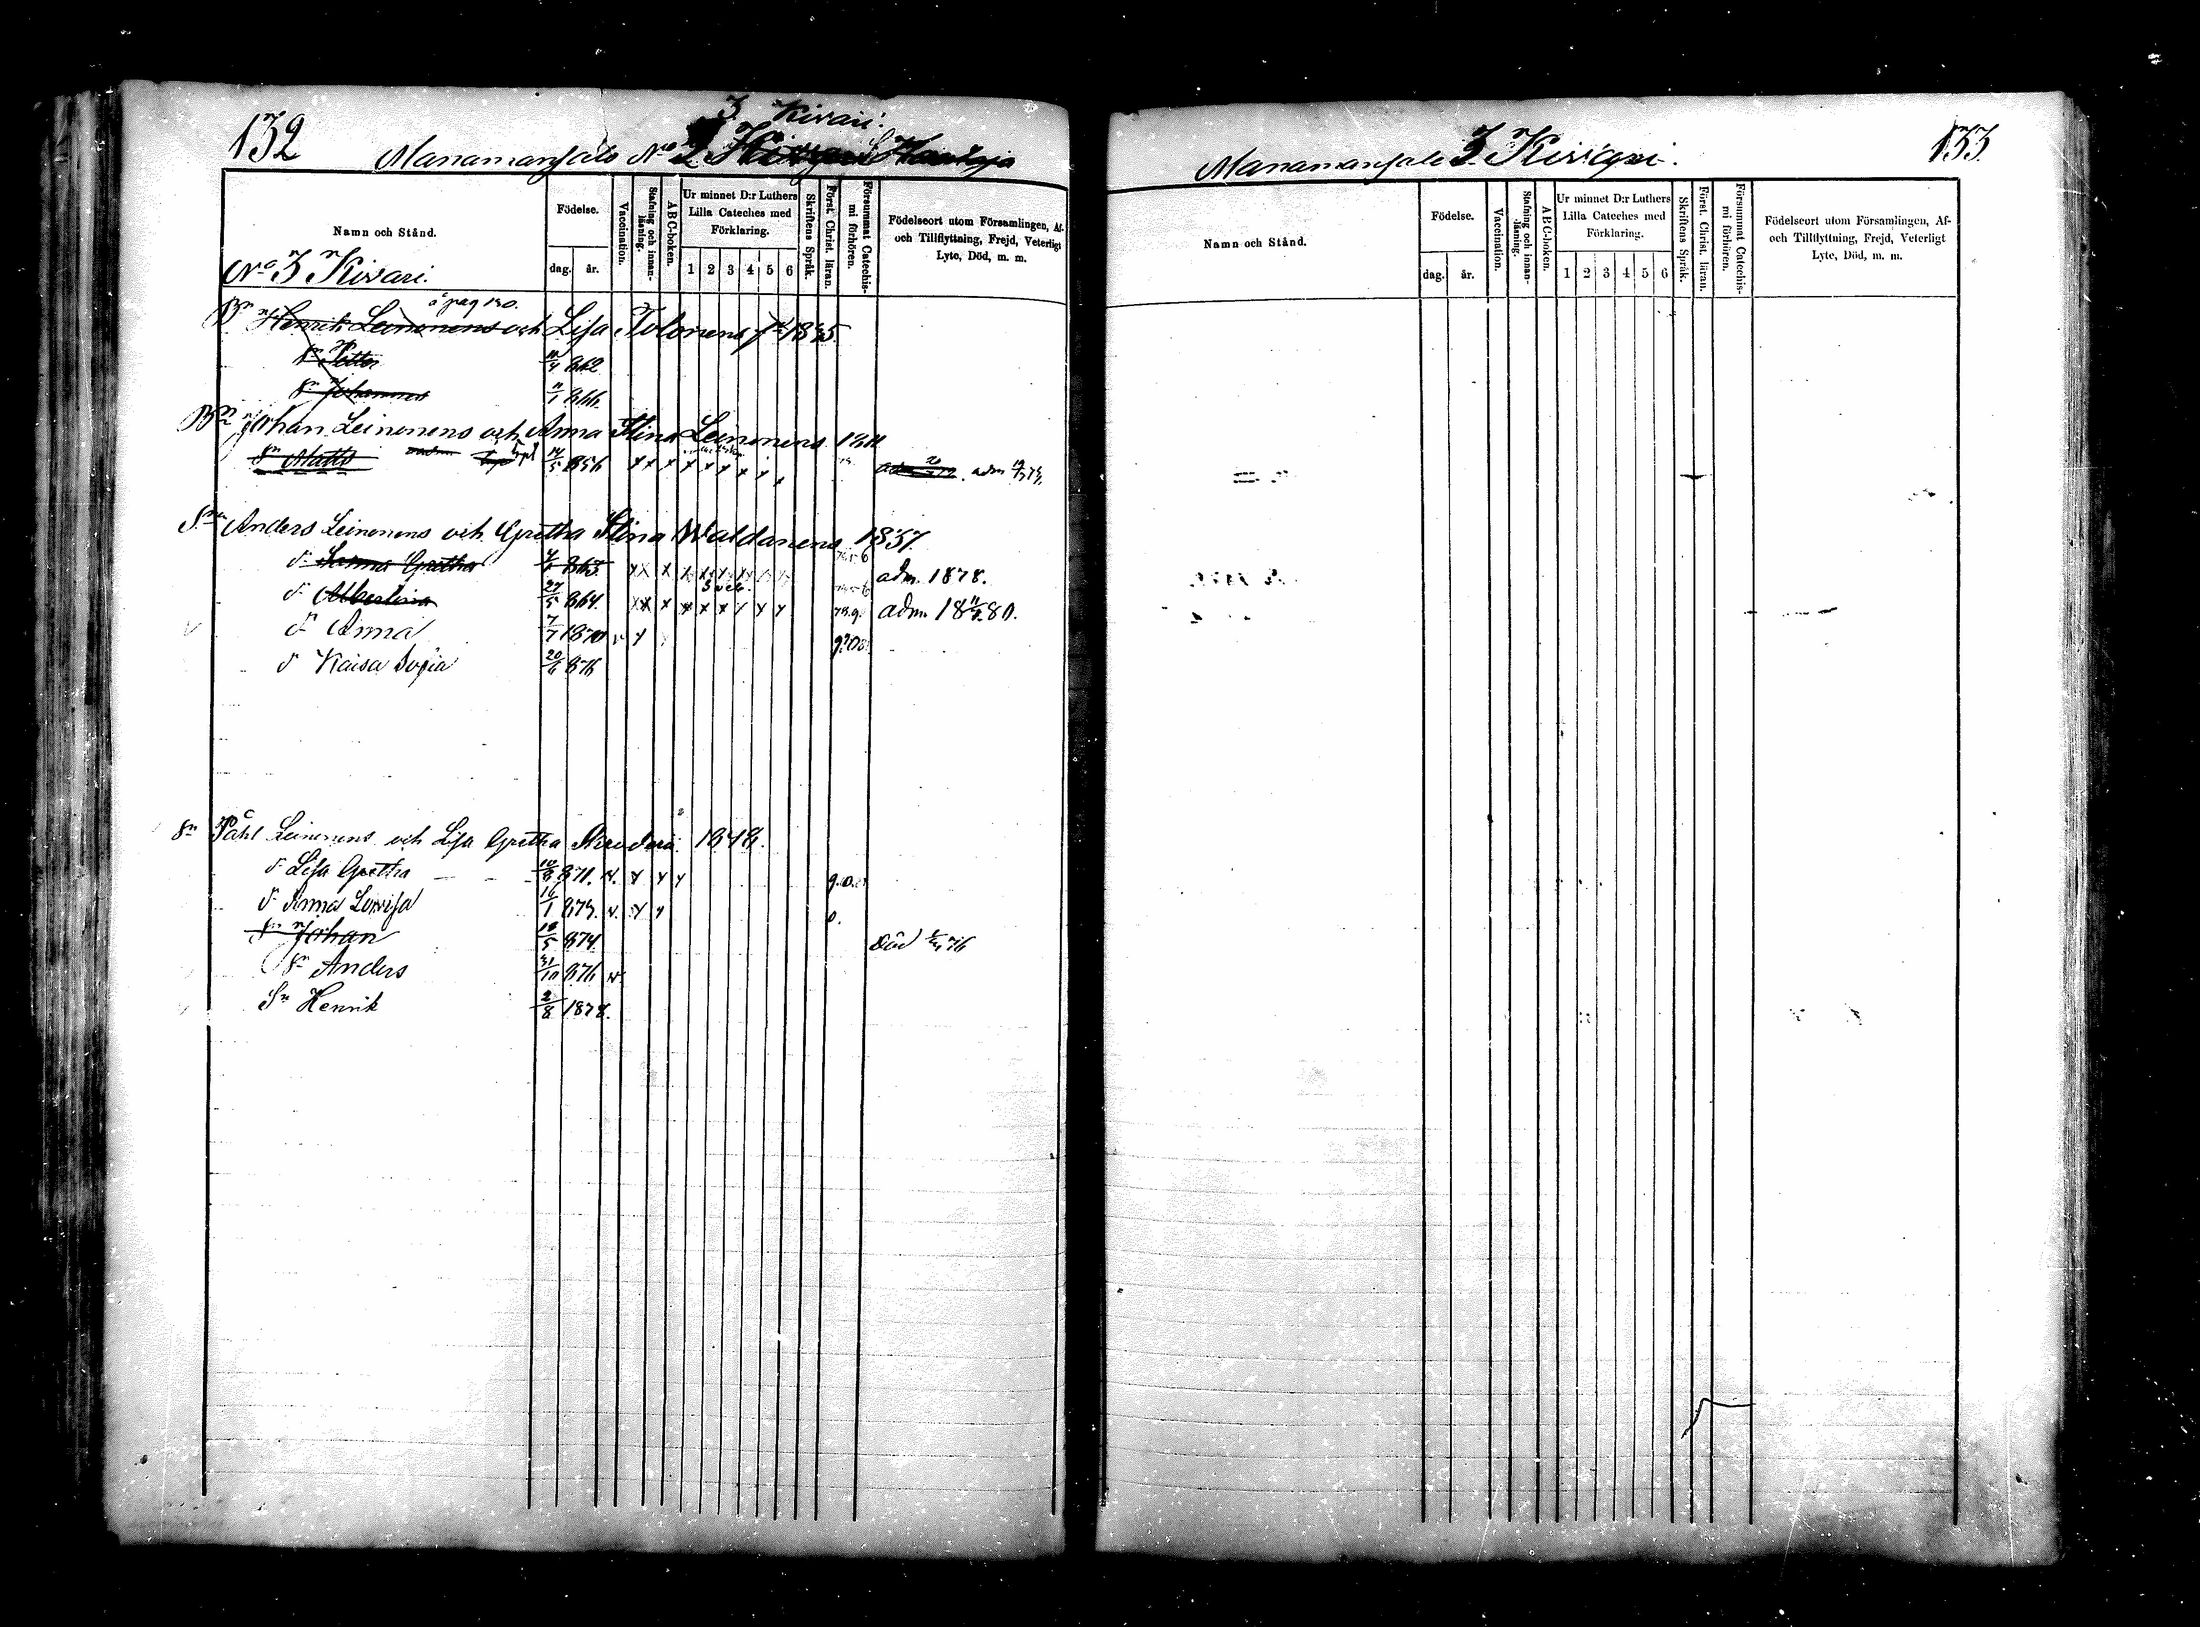 132
3. Kivari.
Manamansalo No
Namn och Stånd.
Födelse.
dag.
år.
Vaccination.
Stafning och innanläsning.
ABC-boken.
Ur minnet D:r Luthers
Lilla Cateches med
Förklaring.
1 2 3 4 5 6
Skriftens Språk.
Först. Christ. läran.
Försummat Catechismi förhören.
Födelseort utom Församlingen, Af-
och Tillflyttning, Frejd, Veterligt
Lyte, Död, m. m.
No 3 Kivari.
å pag 130.
Bn Henrik Leinonens och Lisa Tolonens 1845
sn Petter 862
sn Johannes 1/1 866.
Bn Johan Leinonens och Anna Stina Leinonens
sn Matts 14/5 856 adm
Sn Anders Leinonens och Gretha Stina Waldanens 1837.
d. Sanna Gretha 863. adm. 1878.
d. Albertina 27/5 864. adm. 1880.
d. Anna 7/7 1870
d. Kaisa Sofia 20/6 876
sn Påhl Leinonens och Lisa Gretha 1848.
d. Lisa Gretha 871. v.
d. Anna Lovisa 16/1 873. v.
sn Johan 18/5 874. död 76
sn Anders 31/10 876 v.
Sn Henrik 2/8 1878.
133.
Manamansalo 3. Kivari.
Namn och Stånd.
Födelse.
dag.
år.
Vaccination.
Stafning och innanläsning.
ABC-boken.
Ur minnet D:r Luthers
Lilla Cateches med
Förklaring.
1 2 3 4 5 6
Skriftens Språk.
Först. Christ. läran.
Försummat Catechismi förhören.
Födelseort utom Församlingen, Af-
och Tillflyttning, Frejd, Veterligt
Lyte, Död, m. m.